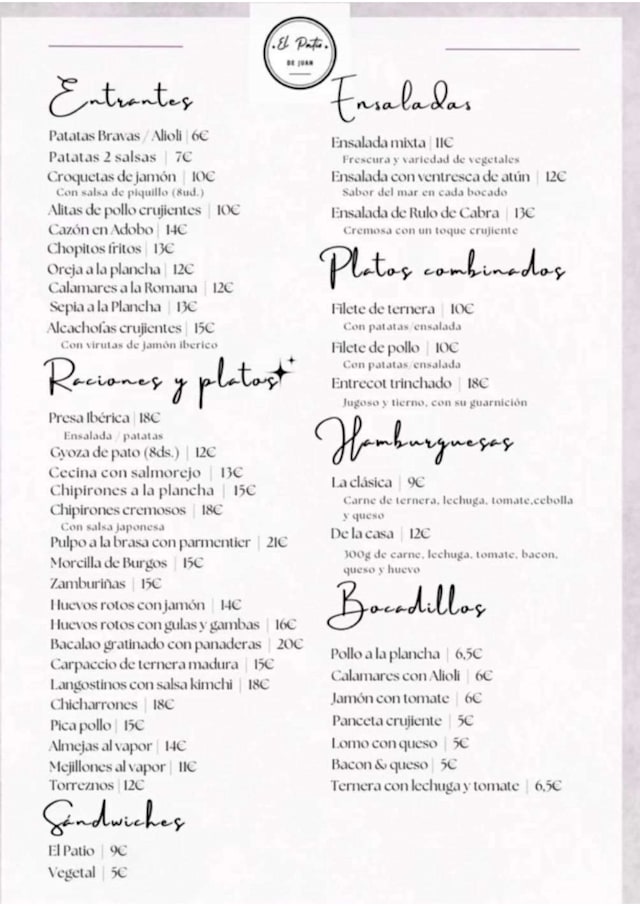 El Patio
DE JUAN
Entrantes
Patatas Bravas / Alioli | 6€
Patatas 2 salsas | 7€
Croquetas de jamón | 10€
Con salsa de piquillo (8ud.)
Alitas de pollo crujientes | 10€
Cazón en Adobo | 14€
Chopitos fritos | 13€
Oreja a la plancha | 12€
Calamares a la Romana | 12€
Sepia a la Plancha | 13€
Alcachofas crujientes | 15€
Con virutas de jamón iberico
Raciones y platos
Presa Ibérica | 18€
Ensalada / patatas
Gyoza de pato (8ds.) | 12€
Cecina con salmorejo | 13€
Chipirones a la plancha | 15€
Chipirones cremosos | 18€
Con salsa japonesa
Pulpo a la brasa con parmentier | 21€
Morcilla de Burgos | 15€
Zamburiñas | 15€
Huevos rotos con jamón | 14€
Huevos rotos con gulas y gambas | 16€
Bacalao gratinado con panaderas | 20€
Carpaccio de ternera madura | 15€
Langostinos con salsa kimchi | 18€
Chicharrones | 18€
Pica pollo | 15€
Almejas al vapor | 14€
Mejillones al vapor | 11€
Torreznos | 12€
Sándwiches
El Patio | 9€
Vegetal | 5€
Ensaladas
Ensalada mixta | 11€
Frescura y variedad de vegetales
Ensalada con ventresca de atún | 12€
Sabor del mar en cada bocado
Ensalada de Rulo de Cabra | 13€
Cremosa con un toque crujiente
Platos combinados
Filete de ternera | 10€
Con patatas/ensalada
Filete de pollo | 10€
Con patatas/ensalada
Entrecot trinchado | 18€
Jugoso y tierno, con su guarnición
Hamburguesas
La clásica | 9€
Carne de ternera, lechuga, tomate,cebolla
y queso
De la casa | 12€
300g de carne, lechuga, tomate, bacon,
queso y huevo
Bocadillos
Pollo a la plancha | 6,5€
Calamares con Alioli | 6€
Jamón con tomate | 6€
Panceta crujiente | 5€
Lomo con queso | 5€
Bacon & queso | 5€
Ternera con lechuga y tomate | 6,5€